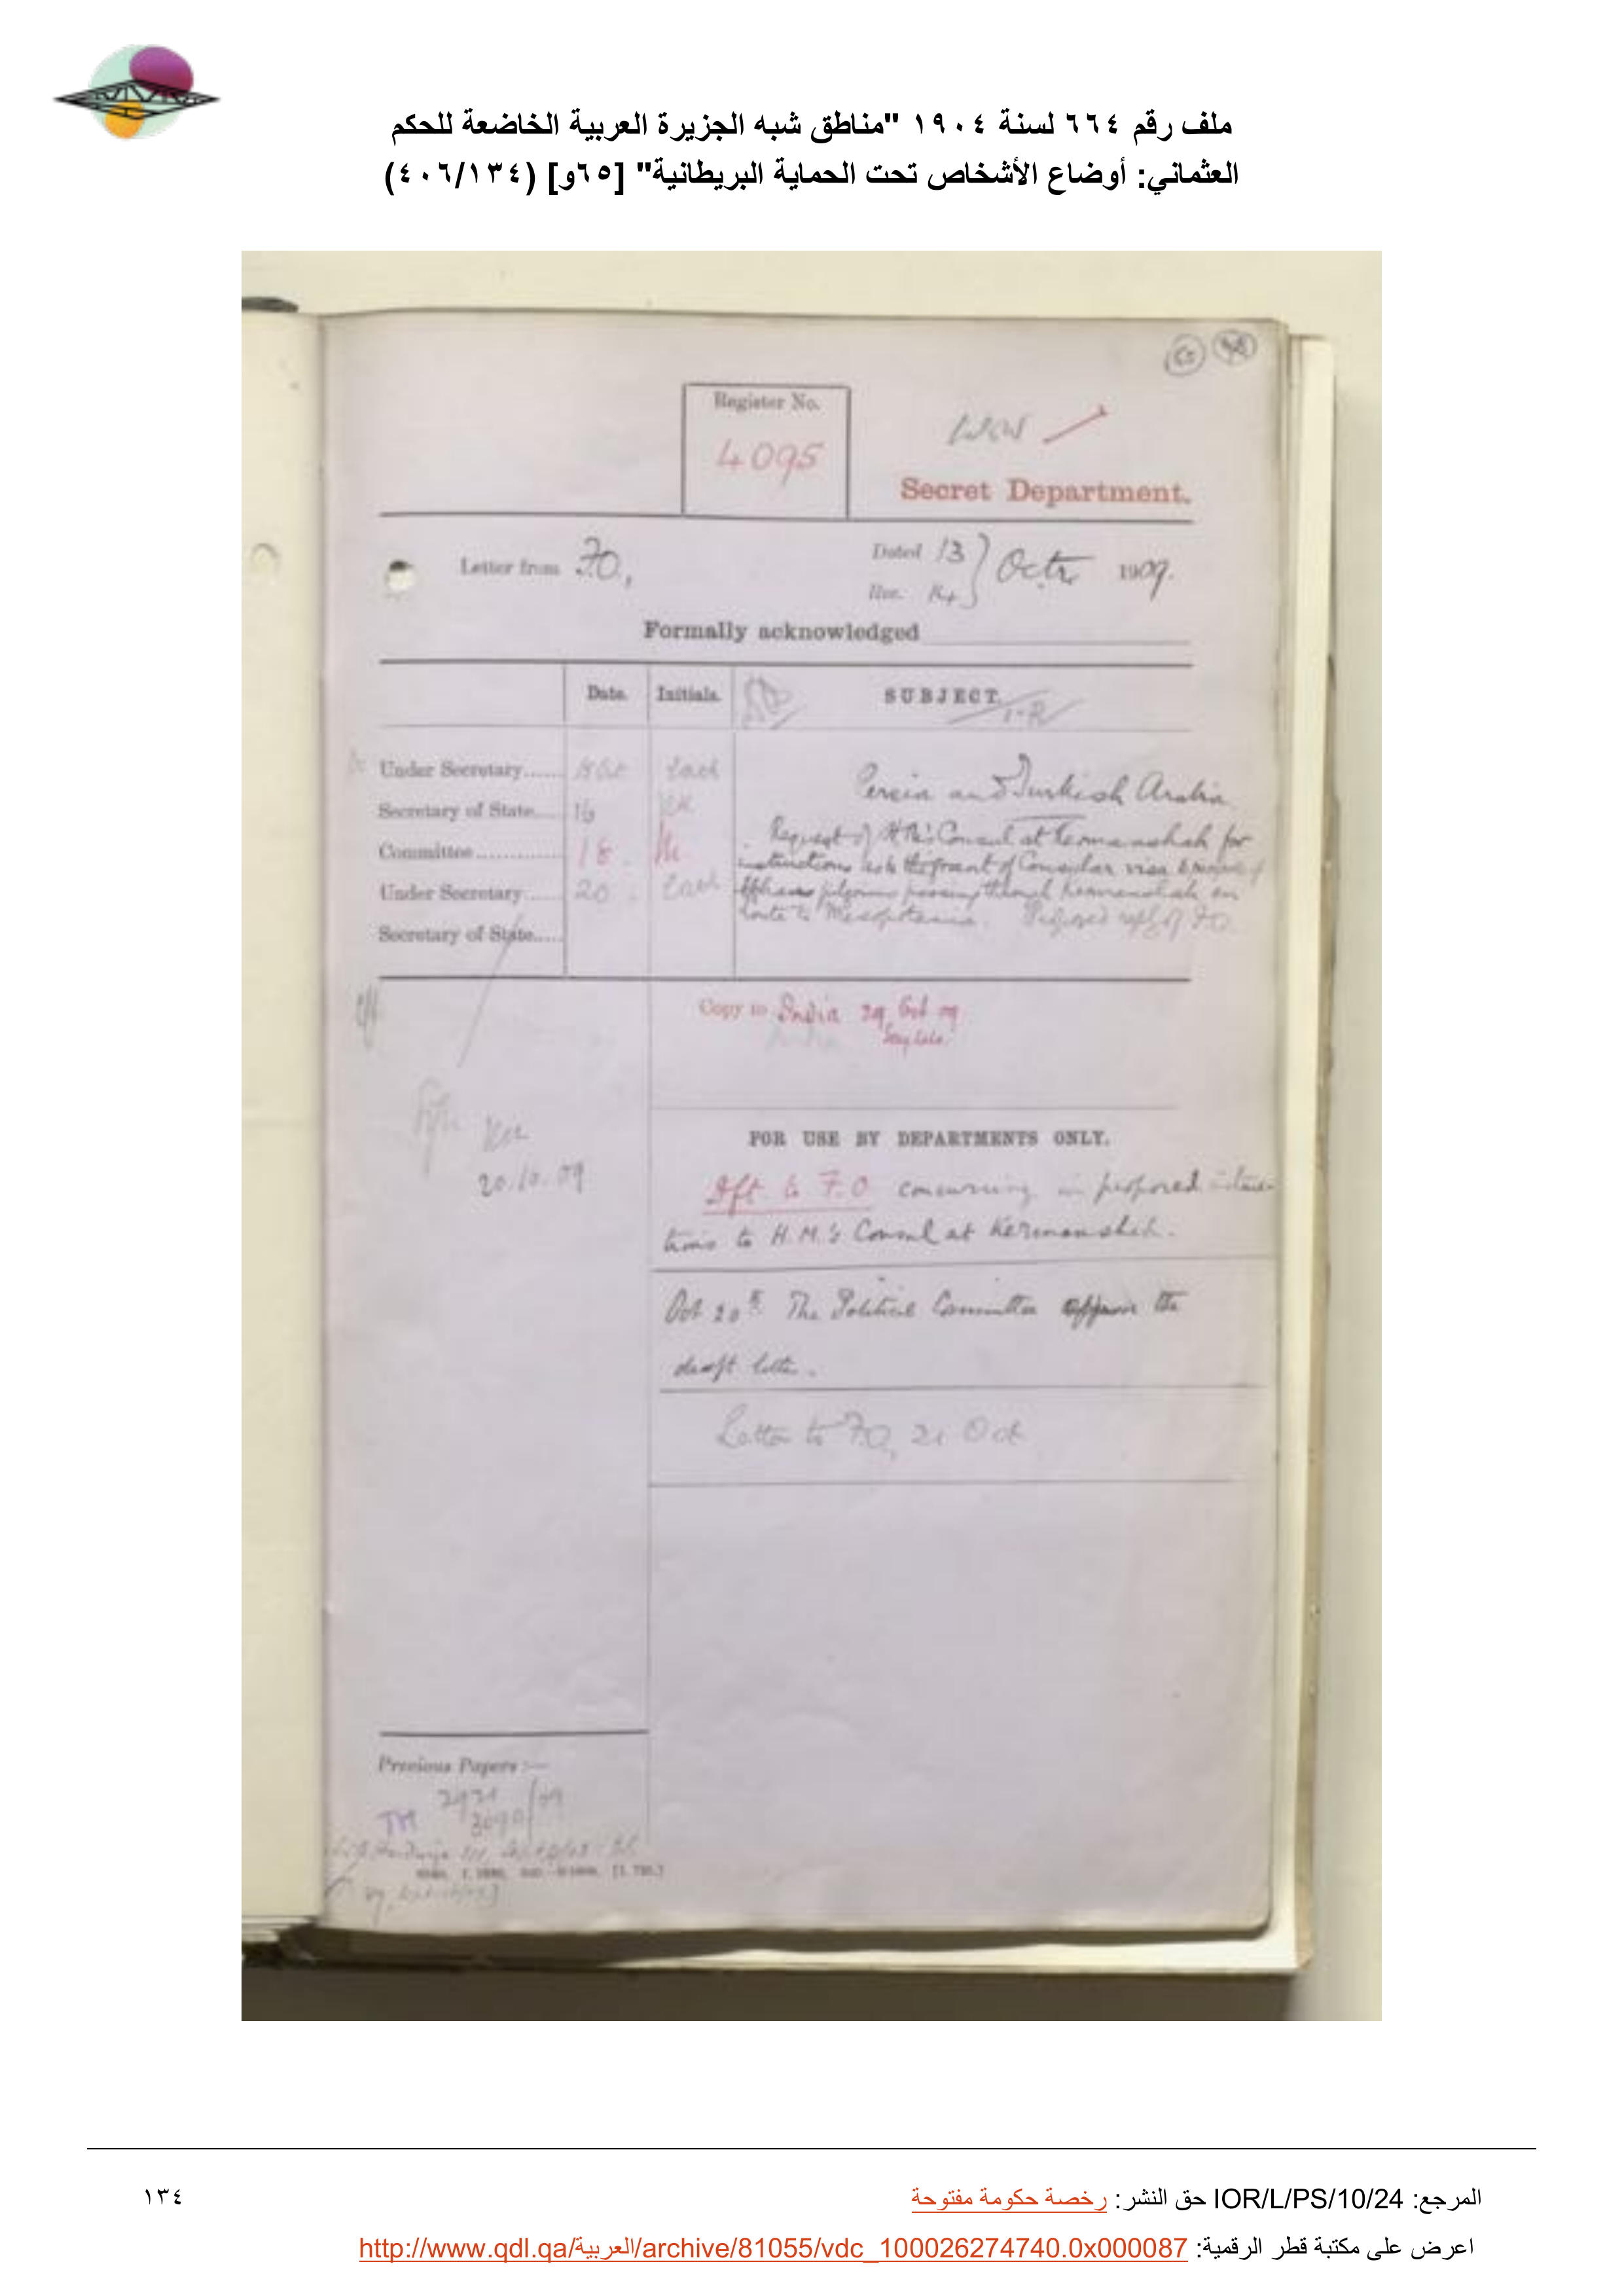 ملف رقم ٦٦٤ لسنة ١٩٠٤ "مناطق شبه الجزيرة العربية الخاضعة للحكم
العثماني: أوضاع الأشخاص تحت الحماية البريطانية" [٦٥و] (٤٠٦/١٣٤)
65
Register No.
4095
Secret Department.
Letter from F.O.,
Dated 13
Rec. 14
Octr 1909.
Formally acknowledged
Date. Initials. SUBJECT.
Under Secretary......
Secretary of State.... 16
Committee............. 18.
Under Secretary...... 20.
Secretary of State.....
Persia and Turkish Arabia
Request of HM's Consul at Kermanshah for
instructions as to the grant of Consular visa
Afghan pilgrims passing through Kermanshah en
route to Mesopotamia. Proposed reply of F.O.
Copy to India 29 Oct 09
FOR USE BY DEPARTMENTS ONLY.
20.10.09
Dft to F.O concurring in proposed instruc-
tions to H.M.'s Consul at Kermanshah.
Oct 20th The Political Committee approve the
draft letter.
Letter to F.O, 21 Oct
Previous Papers :—
المرجع: IOR/L/PS/10/24 حق النشر: رخصة حكومة مفتوحة
١٣٤
اعرض على مكتبة قطر الرقمية: http://www.qdl.qa/العربية/archive/81055/vdc_100026274740.0x000087